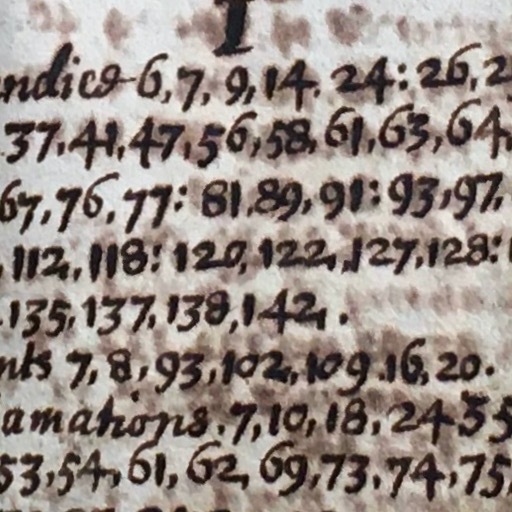 I
ndice 6, 7, 9, 14. 24: 26, 2
37. 41, 47, 56, 58, 61, 63, 64,
67, 76, 77: 81, 89, 91: 93, 97,
, 112, 118: 120, 122, 127, 128:
. 135, 137, 138, 142, .
nts 7, 8, 93, 102, 109. 16, 20.
amations. 7, 10, 18, 24 35
53, 54, 61, 62, 69, 73, 74, 75,